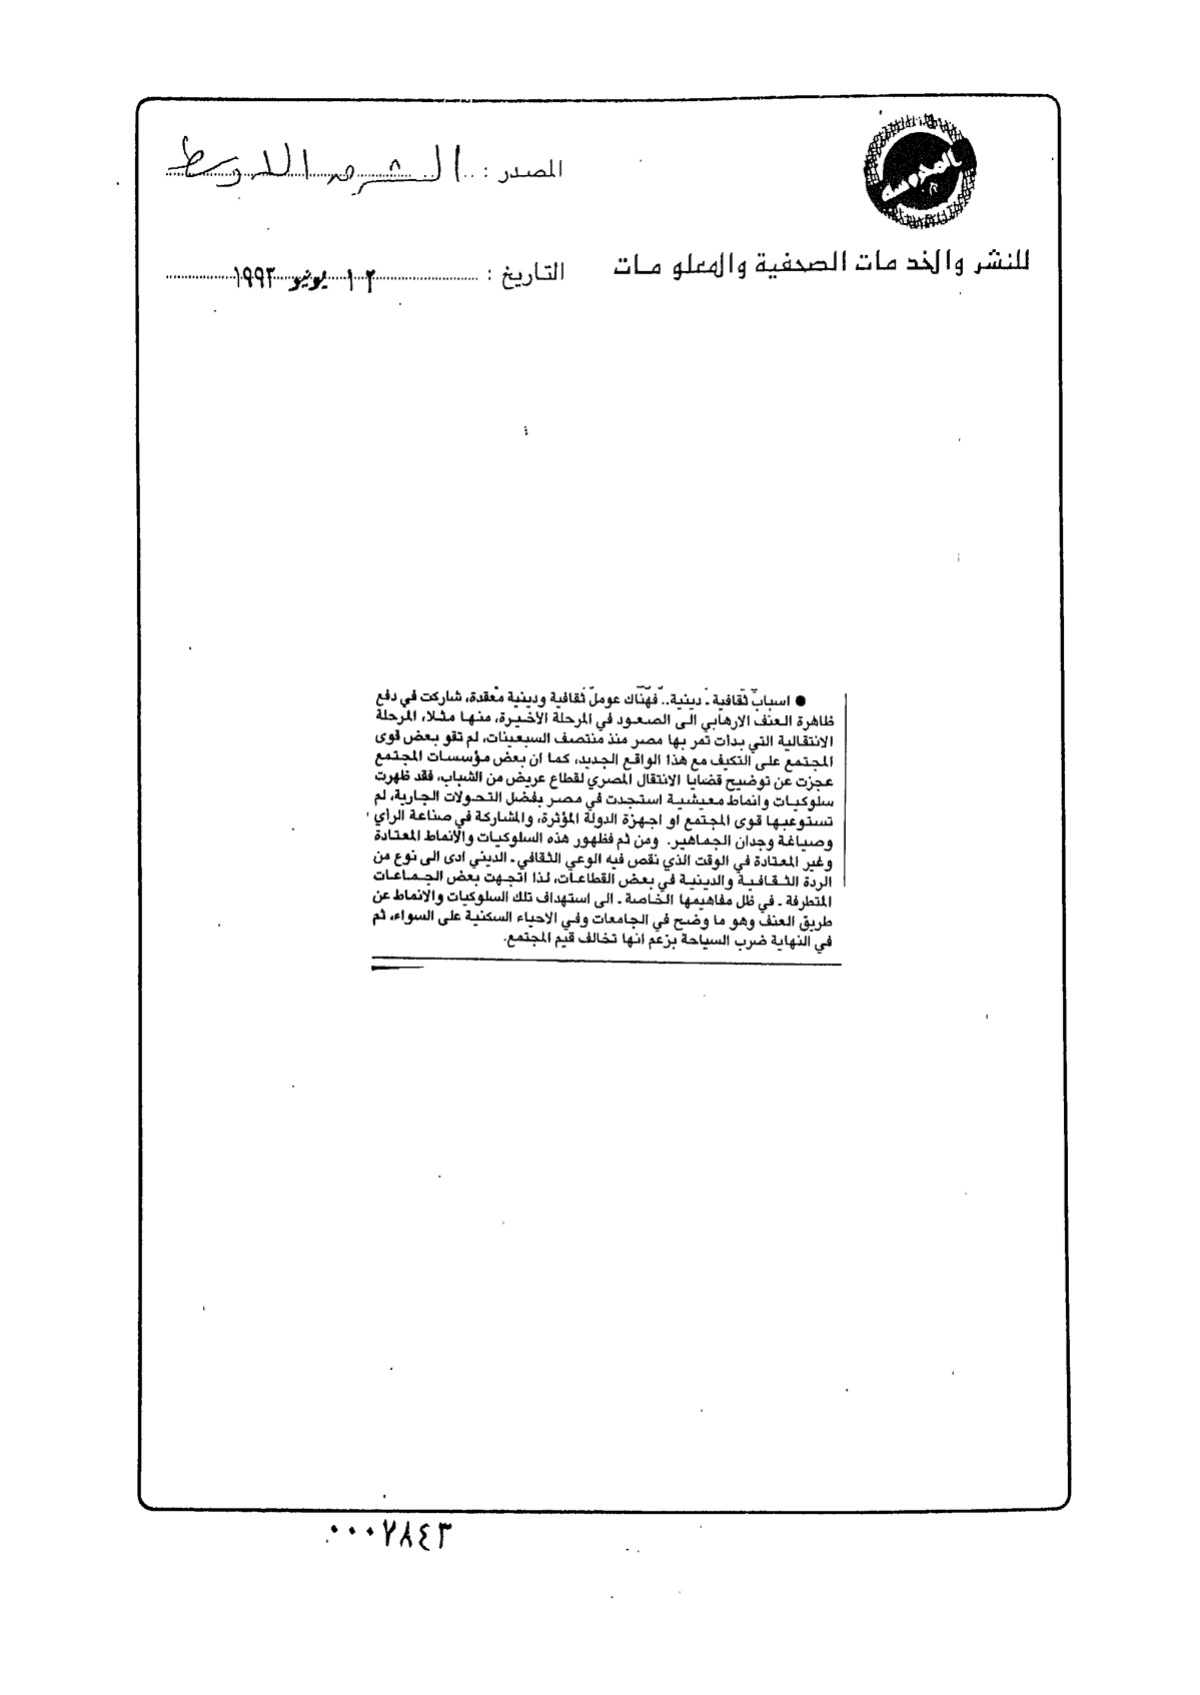 المحروسة
المصدر : الشرق الاوسط
للنشر والخدمات الصحفية والمعلومات
التاريخ : ١٢ يونيو ١٩٩٣
● اسباب ثقافية ـ دينية.. فهناك عومل ثقافية ودينية معقدة، شاركت في دفع
ظاهرة العنف الارهابي الى الصعود في المرحلة الأخيرة، منها مثلا، المرحلة
الانتقالية التي بدأت تمر بها مصر منذ منتصف السبعينات، لم تقو بعض قوى
المجتمع على التكيف مع هذا الواقع الجديد، كما ان بعض مؤسسات المجتمع
عجزت عن توضيح قضايا الانتقال المصري لقطاع عريض من الشباب، فقد ظهرت
سلوكيات وانماط معيشية استجدت في مصر بفضل التحولات الجارية، لم
تستوعبها قوى المجتمع او اجهزة الدولة المؤثرة، والمشاركة في صناعة الرأي
وصياغة وجدان الجماهير. ومن ثم فظهور هذه السلوكيات والانماط المعتادة
وغير المعتادة في الوقت الذي نقص فيه الوعي الثقافي ـ الديني ادى الى نوع من
الردة الثقافية والدينية في بعض القطاعات، لذا اتجهت بعض الجماعات
المتطرفة ـ في ظل مفاهيمها الخاصة ـ الى استهداف تلك السلوكيات والانماط عن
طريق العنف وهو ما وضح في الجامعات وفي الاحياء السكنية على السواء، ثم
في النهاية ضرب السياحة بزعم انها تخالف قيم المجتمع.
٠٠٠٧٨٤٣